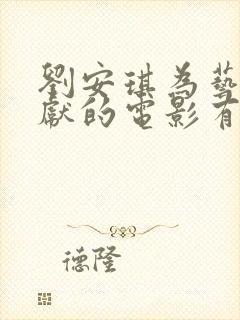 劉安琪為藝
獻的電影有
德隆